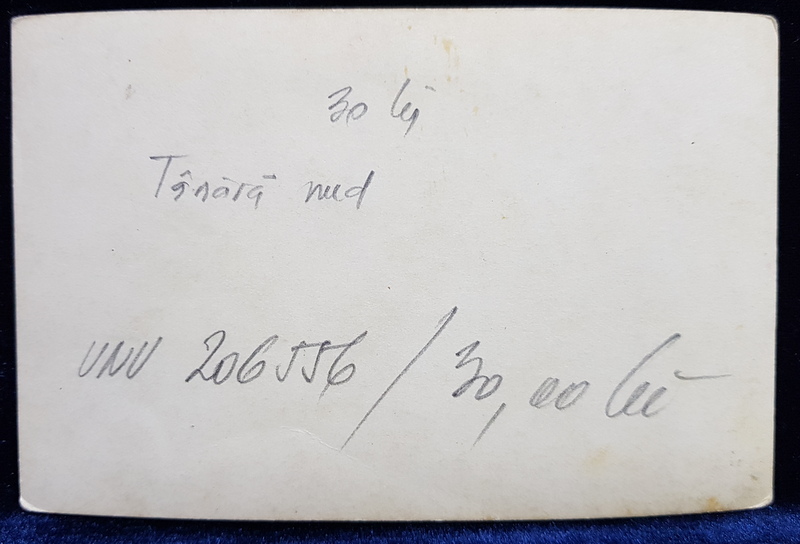 30 lei
Tânără nud
UNU 206556 / 30,00 lei